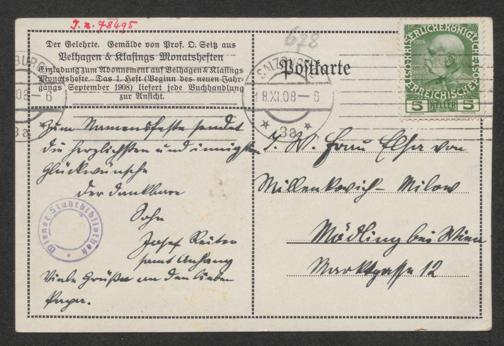 J. n. 78495
Der Gelehrte. Gemälde von Prof. O. Seitz aus
Velhagen & Klasings Monatsheften
Einladung zum Abonnement auf Velhagen & Klasings
Monatshefte. Das 1. Heft (Beginn des neuen Jahr-
gangs September 1908) liefert jede Buchhandlung
zur Ansicht.
678
Postkarte
SALZBURG
18.XI.08–6
* 3a *
KAISERLICHE KÖNIGLICHE
ÖSTERREICHISCHE POST
5 HELLER 5
Zum Namensfeste sendet
die herzlichsten und innigsten
Glückwünsche
der dankbare
Sohn
Josef Reiter
samt Anhang
Viele Grüße an den lieben
Papa.
Wiener Stadtbibliothek
I. W. Frau Elsa von
Millenkovich-Milow
Mödling bei Wien
Marktgasse 12